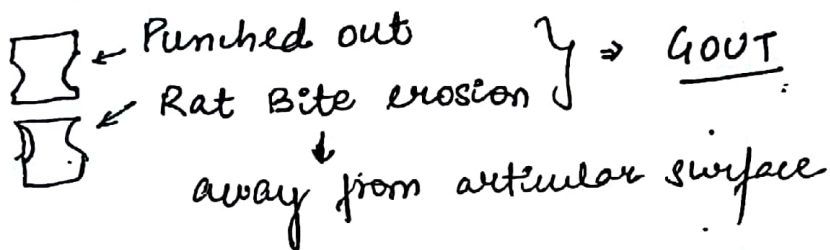 Punched out } ⇒ GOUT
Rat Bite erosion
↓
away from articular surface